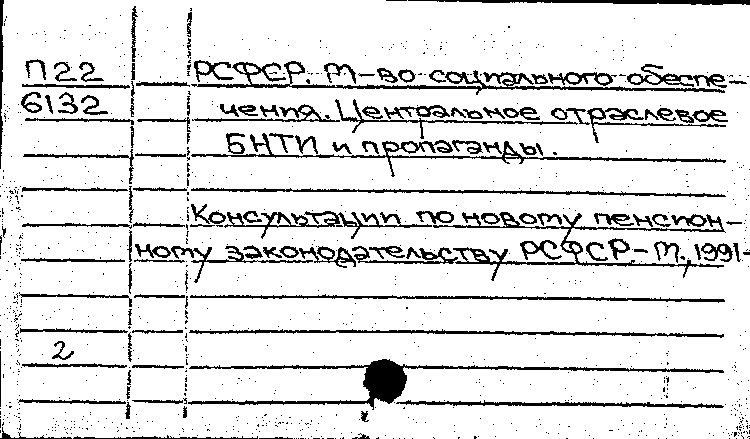 П22 РСФСР. М-во социального обеспе-
6132 чения. Центральное отраслевое
БНТИ и пропаганды.
Консультации по новому пенсион-
ному законодательству РСФСР.-М., 1991-
2